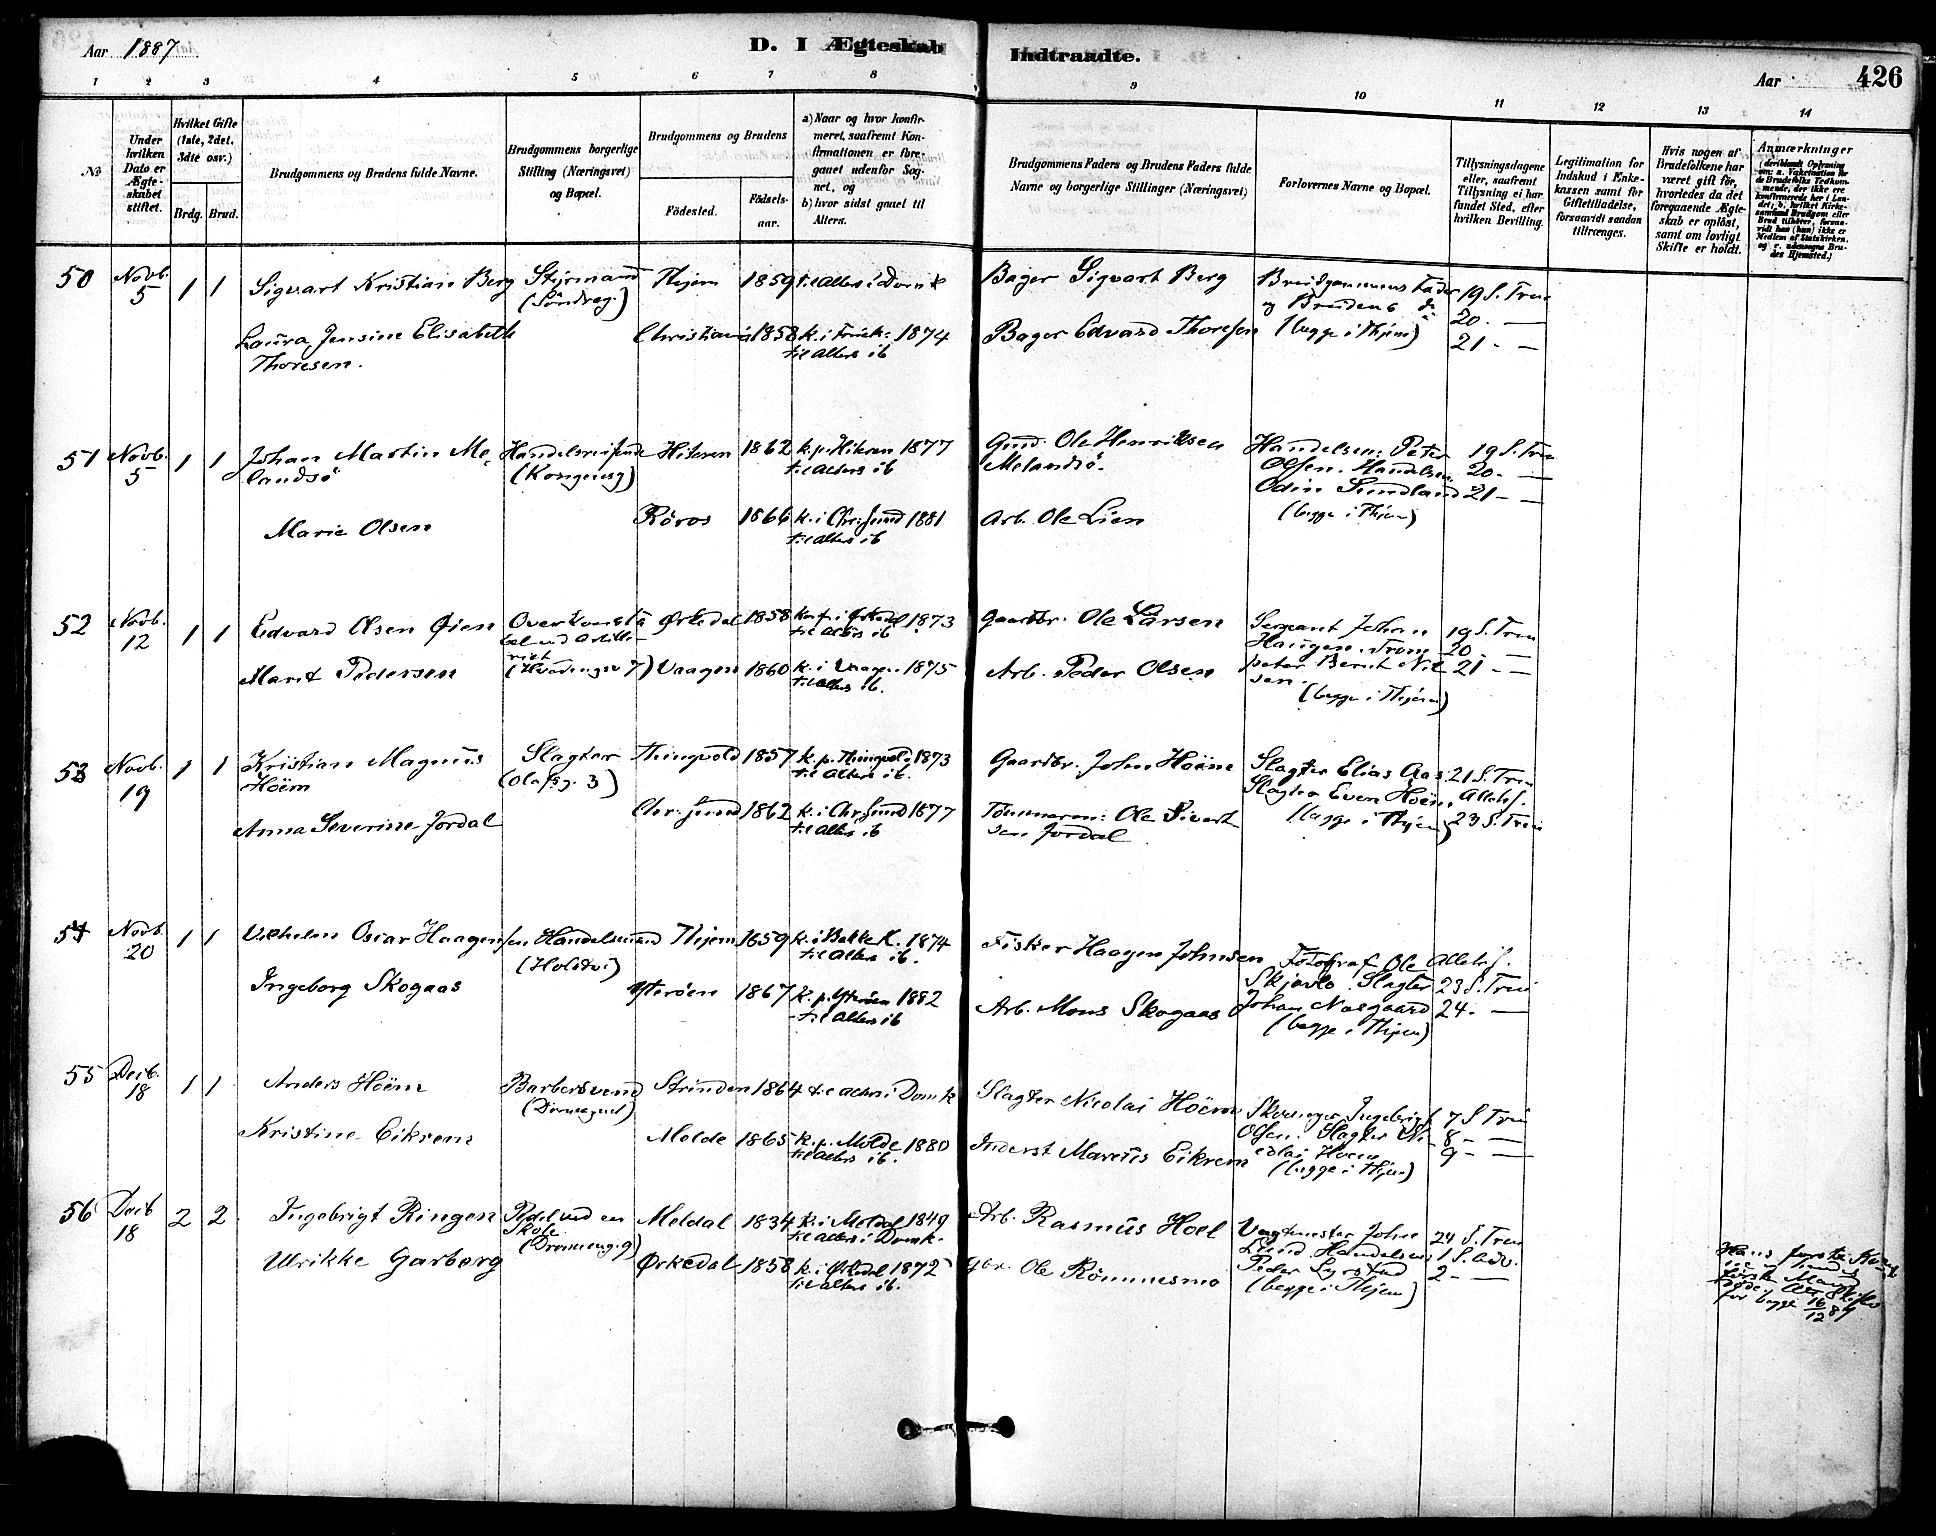 Aar 1887
D. I Ægteskab
Indtraadte.
Aar
426
1 2 3 4 5 6 7 8 9 10 11 12 13 14
No
Under hvilken Dato er Ægteskabet stiftet.
Hvilket Gifte (1ste, 2det, 3die osv.)
Brdg. Brud.
Brudgommens og Brudens fulde Navne.
Brudgommens borgerlige Stilling (Næringsvei) og Bopæl.
Brudgommens og Brudens
Fødested.
Fødselsaar.
a) Naar og hvor konfirmeret, saafremt Konfirmationen er foregaaet udenfor Sognet, og
b) hvor sidst gaaet til Alters.
Brudgommens Faders og Brudens Faders fulde Navne og borgerlige Stillinger (Næringsvei)
Forlovernes Navne og Bopæl.
Tillysningsdagene eller, saafremt Tillysning ei har fundet Sted, efter hvilken Bevilling.
Legitimation for Indskud i Enkekassen samt for Giftetilladelse, forsaavidt saadan tiltrænges.
Hvis nogen af Brudefolkene har været gift før, hvorledes da det foregaaende Ægteskab er opløst, samt om lovligt Skifte er holdt.
Anmærkninger
50 Novb. 5 1 1 Sigvart Kristian Berg Styrmand Thjem 1859 til Alters i Domk
(Søndreg.)
Laura Jensine Elisabeth Thoresen. Christiania 1858 1874
til Alters ib
Bager Sigvart Berg
Bager Edvard Thoresen
Brudgommens Fader og Brudens do
(begge i Thjem)
19 S. Trin
20. —
21 - —
51 Novb. 5 1 1 Johan Martin Melandsö Handelsreisende Hiteren 1862 k. p. Hiteren 1877
(Kongensg) til Alters ib
Marie Olsen Röros 1866 k. i Chr.sund 1881
til Alters ib
Gmd. Ole Henriksen Melandsö.
Arb. Ole Lien
Handelsm: Peter Olsen. Handelsm. Odin Sundland
(begge i Thjem)
19 S. Trin
20- —
21 - —
52 Novb. 12 1 1 Edvard Olsen Øien Ørkedal 1858 Konf. i Ørkedal 1873
til Alters ib
Marit Pedersen Vaagen 1860 k. i Vaagen 1875
til Alters ib.
Gaardbr. Ole Larsen
Arb. Peder Olsen
Sergeant Johan Haugen. Bernt Nilsen.
(begge i Thjem)
19 S. Trin
20- —
21 - —
53 Novb. 19 1 1 Kristian Magnus Höem Slagter Thingvold 1857 k. p. Thingvold 1873
(Olafsg. 3) til Alters ib.
Anna Severine Jordal Chr.sund 1862 k. i Chr.sund 1877
til Alters ib
Gaardbr. John Höem
Tömmerm: Ole Sivertsen Jordal
Slagter Elias Aas.
Slagter Even Höem
(begge i Thjem)
21 S. Trin
Allehf.
23 S. Trin
54 Novb. 20 1 1 Vilhelm Oscar Haagensen Handelsmand Thjem 1859 k. i Bakke K. 1874
til Alters ib.
Ingeborg Skogaas Ytteröen 1867 k. p. Ytteröen 1882
til Alters ib
Fisker Haagen Johnsen
Arb. Mons Skogaas
Fotograf Ole Skjavlo. Slagter Johan Nasgaard
(begge i Thjem)
Allehf.
23 S. Trin
24- —
55 Decb. 18 1 1 Anders Höem Barbersvend Strinden 1864 til Alters i Domk
Kristine Eikrem Molde 1865 k. p. Molde 1880
til Alters ib.
Slagter Nicolai Höem
Inderst Marius Eikrem
Ingebrigt Olsen. Slagter Nicolai Hoem
(begge i Thjem)
7 S Trin
8- —
9 - —
56 Decb 18 2 2 Ingebrigt Ringen Pedel ved en Skole Meldal 1834 k. i Meldal 1849
til Alters i Domk.
Ulrikke Garberg Ørkedal 1858 k. i Ørkedal 1872
til Alters ib.
Arb. Rasmus Hoel
Gbr. Ole Römmesmo
Vagtmester John Lund. Handelsm Peder
(begge i Thjem)
24 S. Trin
1 S. Adv.
2- —
Hans første Kone
første Mand
døde. Skifte
for begge 16/12 87